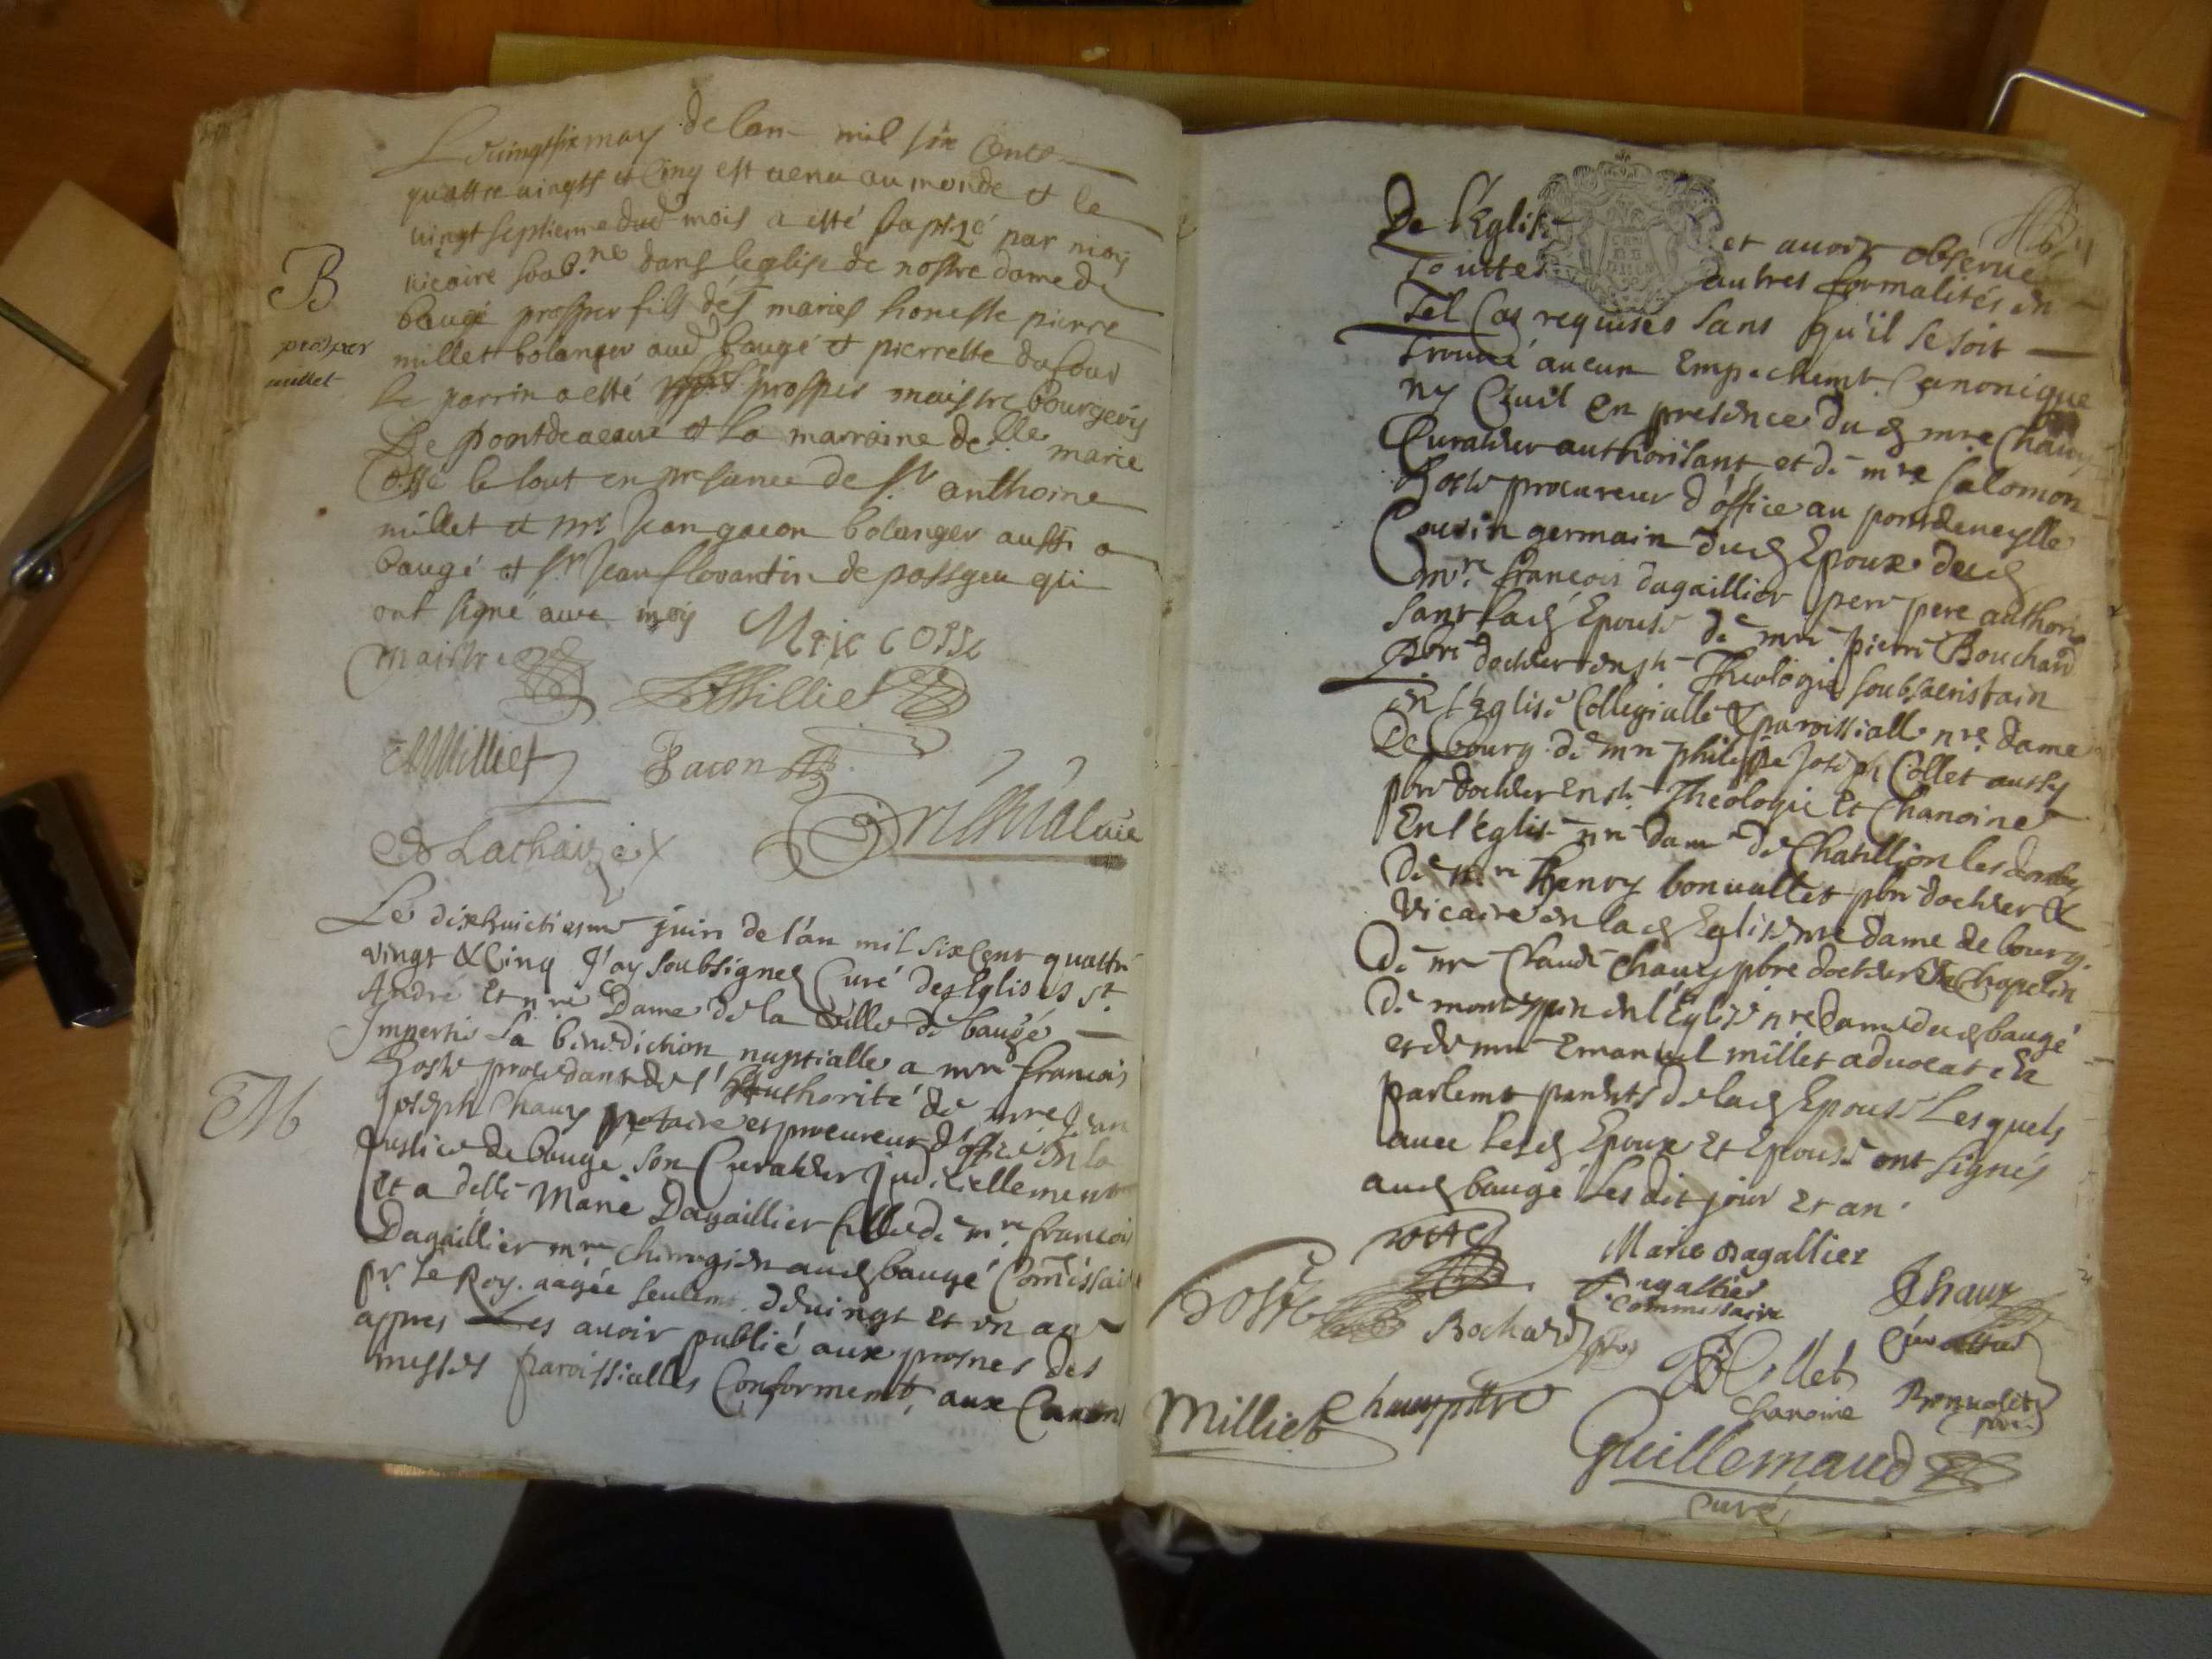 Le vingtsix may de lan mil six cents
quattre vingts et cinq est venu au monde et le
vingt septieme dud mois a esté baptizé par moy
vicaire soub.né dans leglise de nostre dame de
baugé prosper fils des mariés honeste pierre
millet bolanger aud baugé et pierrette dufour
le parrin a esté Sr prosper maistre bourgeois
de pontdevaux et la marraine delle marie
Cosse le tout en presance de Sr anthoine
millet et mr Jean gacon bolanger aussi a
baugé et Sr Jean florantin de possgeu qui
ont signé avec moy
B
prosper
millet
Maistre
Marie Cosse
Milliet
AMilliet
Gacon
Lachaize
vicaire
Le dixhuictiesme juin de l'an mil six Cent quattre
vingt & Cinq J'ay soubsigné Curé des Eglises St
André et nre Dame de la ville de baugé
Imperti la benediction nuptialle a mre francois
hoste procedant de l'authorité de mre Jean
Joseph Chaux notaire et procureur d'office en la
Justice de bauge son Curateur judiciellement
Et a delle Marie Dagaillier fille de mre francois
Dagaillier mre chirurgien aud baugé Commissaire
pr Le Roy. aagée seulemt de vingt et un an
appres Les avoir publié aux prosnes des
messes paroissialles Conformemt aux Canons
M
De l'Eglise et avoir observé
touttes autres formalités en
Tel Cas requises sans qu'il se soit
trouvé aucun Empechemt Canonique
ny Civil en presence dud mre Chaux
Curateur authorisant et de mre Salomon
hoste procureur d'office au pontdeveylle
Cousin germain dud Epoux dud
mre francois dagaillier pere authori
sant lad Epouse de mre pierre Bouchard
Pbre docteur en ste Theologie soubsacristain
en l'Eglise Collegialle & paroissialle nre dame
De bourg de mre philippe Joseph Collet aussy
pbre docteur en ste Theologie et Chanoine
En l'Eglise nre dame de Chatillion les dombes
De mre henry bonvallet pbre docteur &
vicaire en lad Eglise nre dame de bourg.
De mre Claude Chaux pbre docteur & Chapelin
de montespin en l'Eglise nre dame dud baugé
et de mre Emanuel millet advocat en
parlemt parents de lad Epouse Lesquels
avec lesd Epoux Et Epouse ont signés
aud baugé les dit jour Et an.
hoste
Marie Dagallier
hoste
Dagallier
commissaire
JChaux
Curatteur
Bochard pbre
Collet
chanoine
Bonvalet
pbre
Milliet
Chaux pbre
Guillemaud
curé